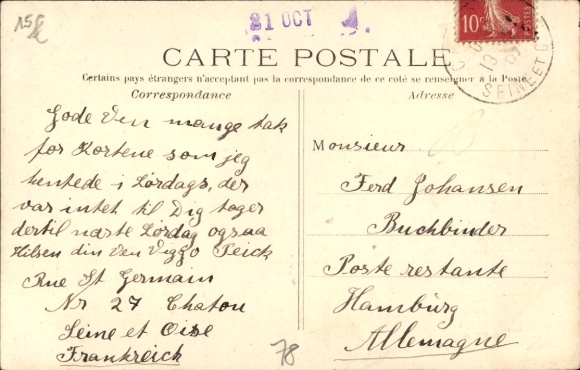 15
21 OCT
10c
POSTES
SEINE ET O
CARTE POSTALE
Certains pays étrangers n'acceptant pas la correspondance de ce coté se renseigner à la Poste
Correspondance
Gode Ven mange tak
for Kortene som jeg
hentede i Lørdags, der
var intet til Dig tager
dertil næste Lørdag ogsaa
Hilsen din Ven Viggo Peick
Rue St Germain
Nr 27 Chatou
Seine et Oise
Frankreich
Adresse
Monsieur
Ferd Johansen
Buchbinder
Poste restante
Hamburg
Allemagne
78